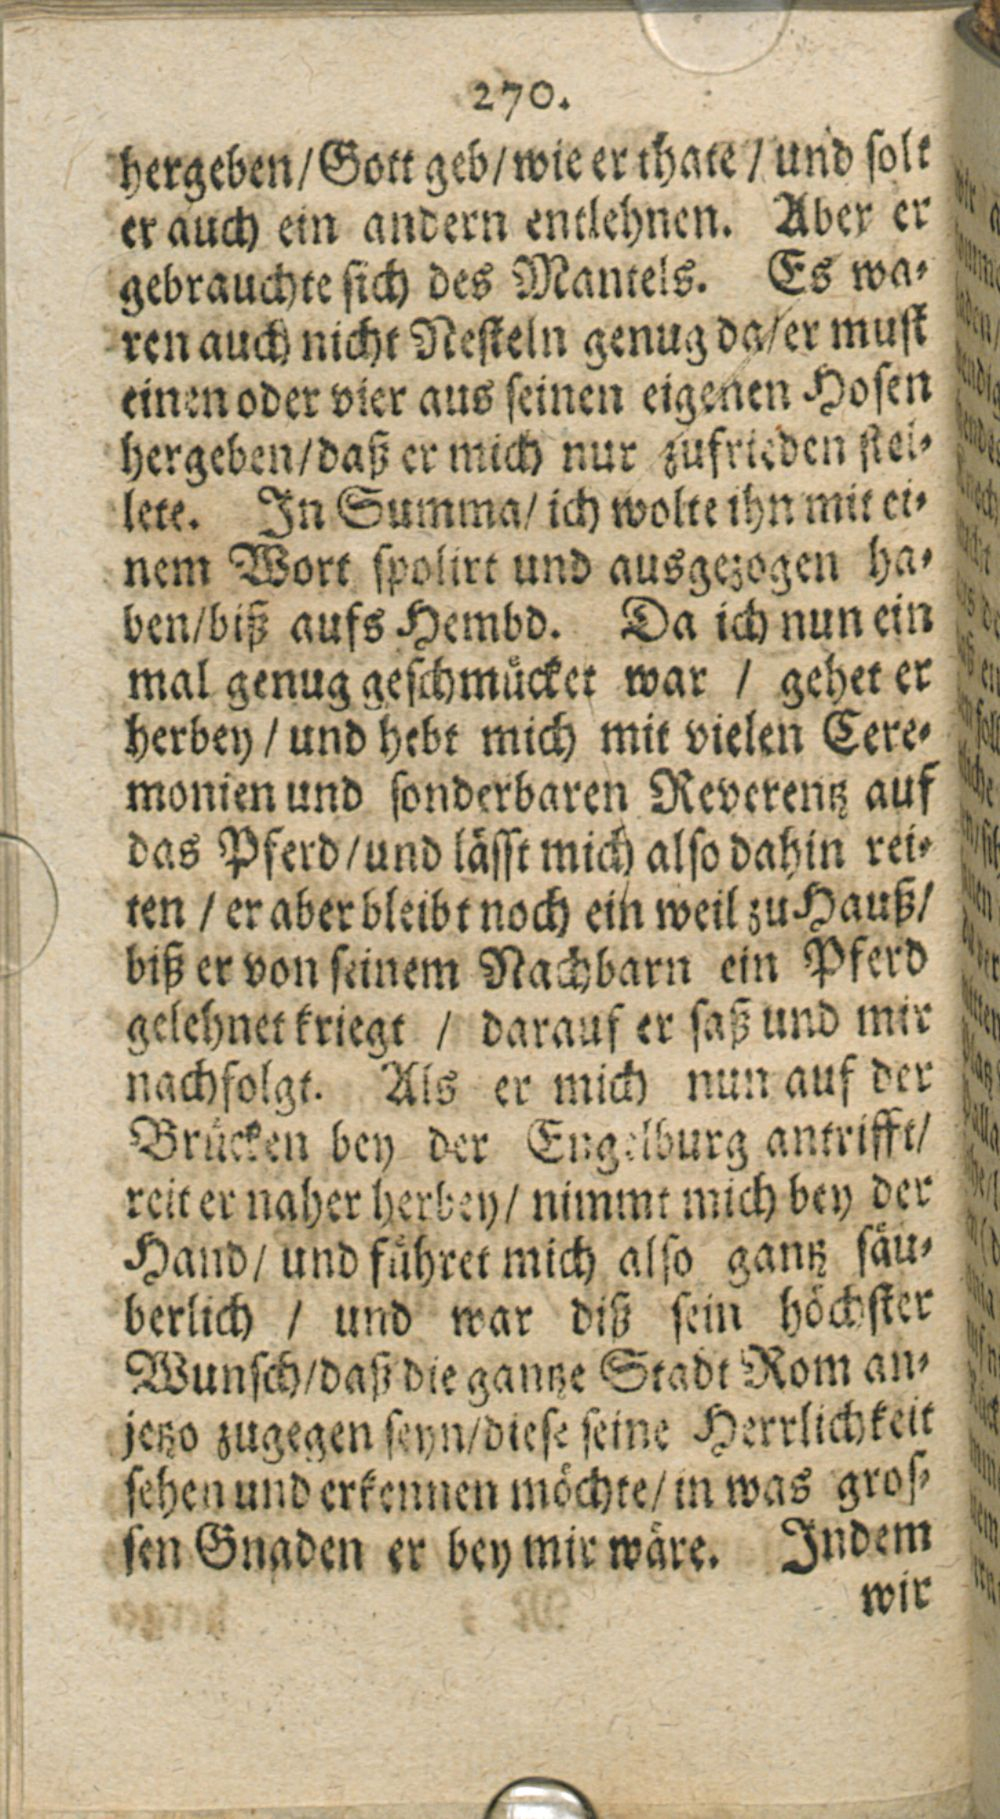 270.
hergeben/Gott geb/wie er thate/und solt
er auch ein andern entlehnen. Aber er
gebrauchte sich des Mantels. Es wa-
ren auch nicht Nesteln genug da/er must
einen oder vier aus seinen eigenen Hosen
hergeben/daß er mich nur zufrieden stel-
lete. In Summa/ich wolte ihn mit ei-
nem Wort spolirt und ausgezogen ha-
ben/biß aufs Hembd. Da ich nun ein
mal genug geschmücket war / gehet er
herbey / und hebt mich mit vielen Cere-
monien und sonderbaren Reverentz auf
das Pferd/und lässt mich also dahin rei-
ten / er aber bleibt noch ein weil zu Hauß/
biß er von seinem Nachbarn ein Pferd
gelehnet kriegt / darauf er saß und mir
nachfolgt. Als er mich nun auf der
Brücken bey der Engelburg antrifft/
reit er naher herbey/ nimmt mich bey der
Hand/ und führet mich also gantz säu-
berlich / und war diß sein höchster
Wunsch/daß die gantze Stadt Rom an-
jetzo zugegen seyn/diese seine Herrlichkeit
sehen und erkennen möchte/in was gros-
sen Gnaden er bey mir wäre. Indem
wir